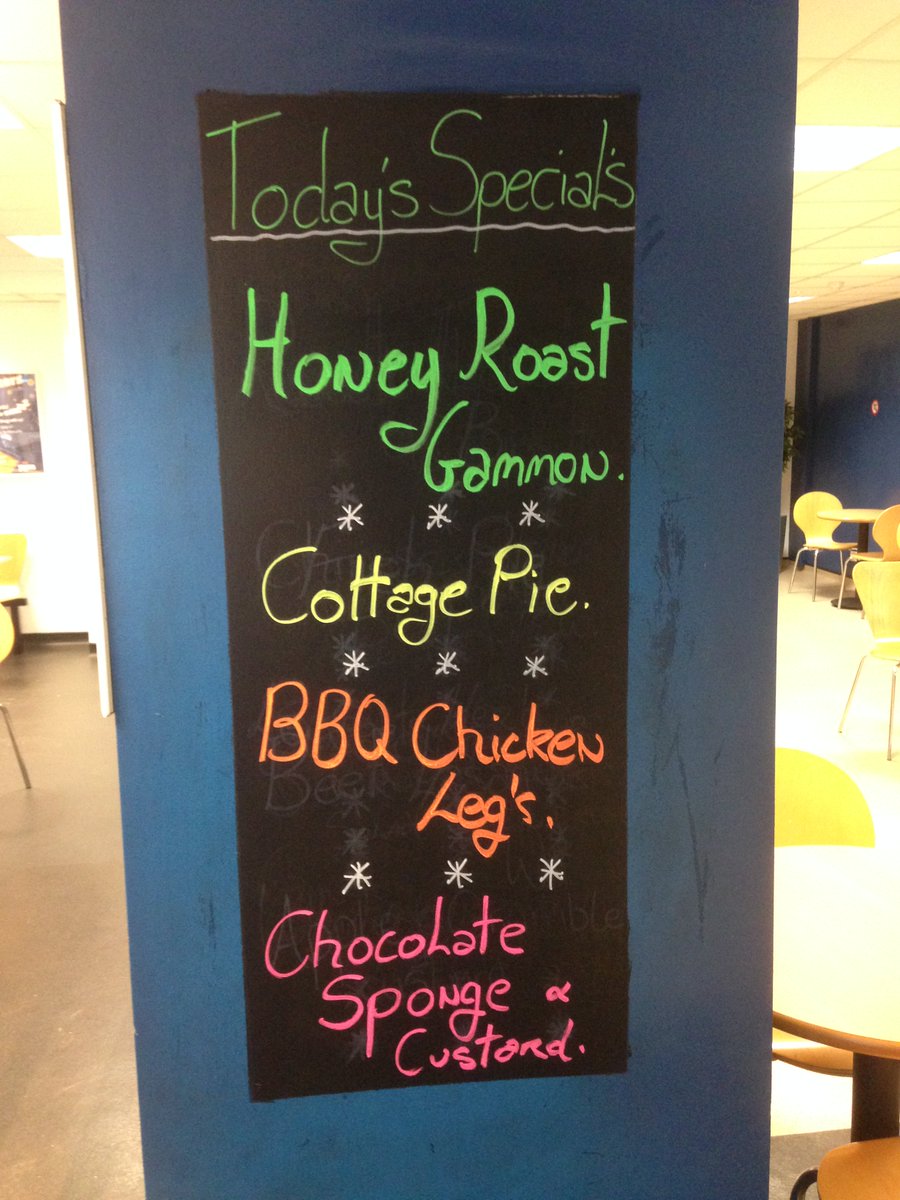 Today's Special's
Honey Roast
Gammon.
* * *
Cottage Pie.
* * *
BBQ Chicken
Leg's.
* * *
Chocolate
Sponge &
Custard.